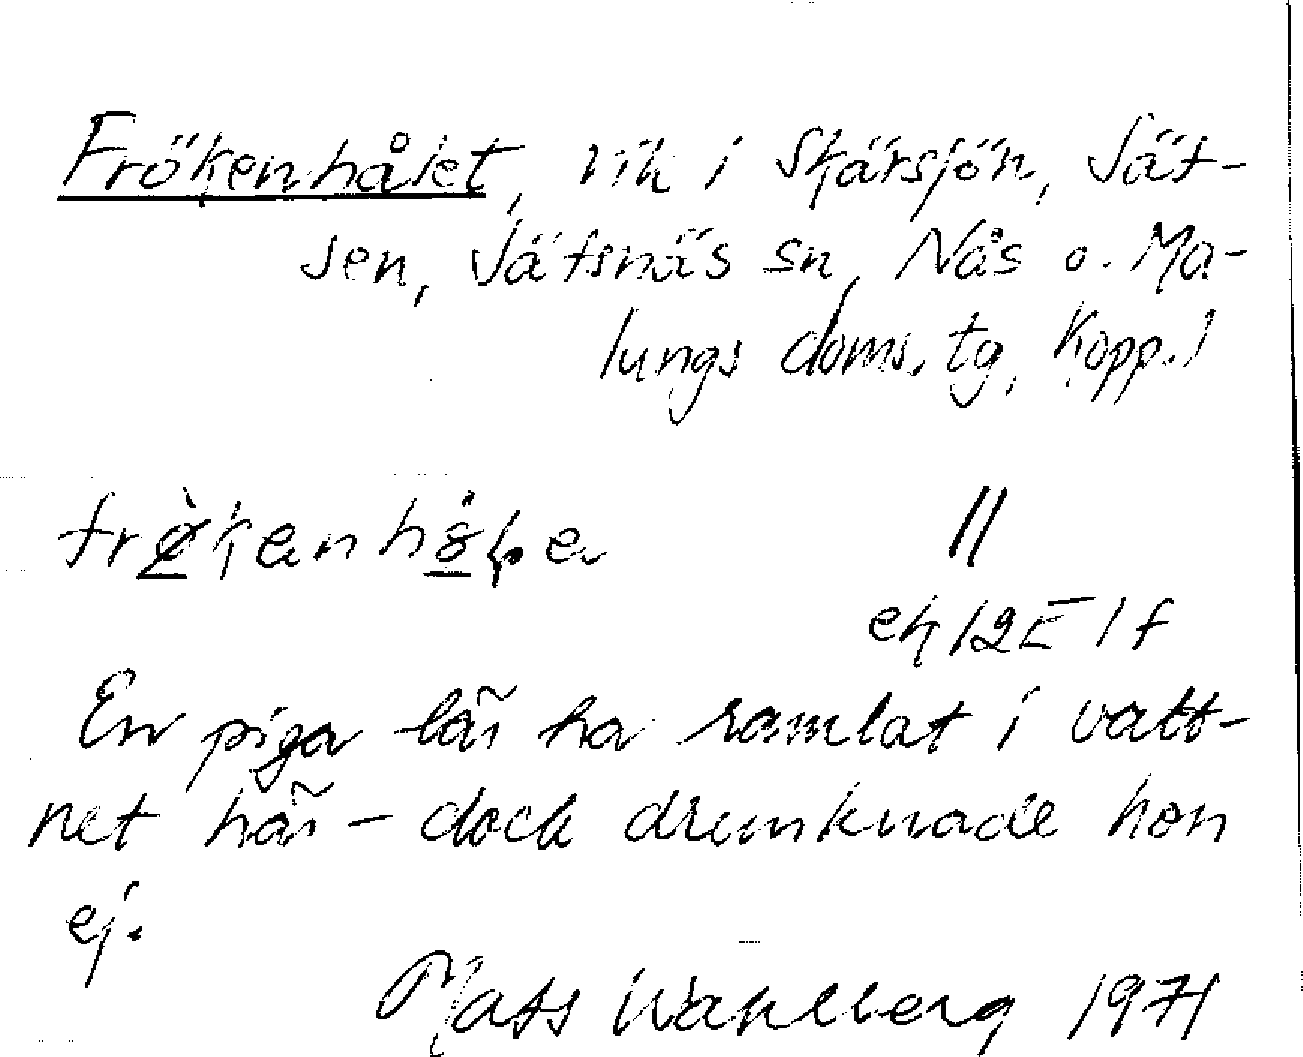 Frökenhålet, vik i Skärsjön, Sät-
sen, Säfsnäs sn, Nås o. Ma-
lungs doms. tg, Kopp. l
ek 12E 1f
En piga lär ha ramlat i vatt-
net här – dock drunknade hon
ej.
Mats Wahlberg 1971